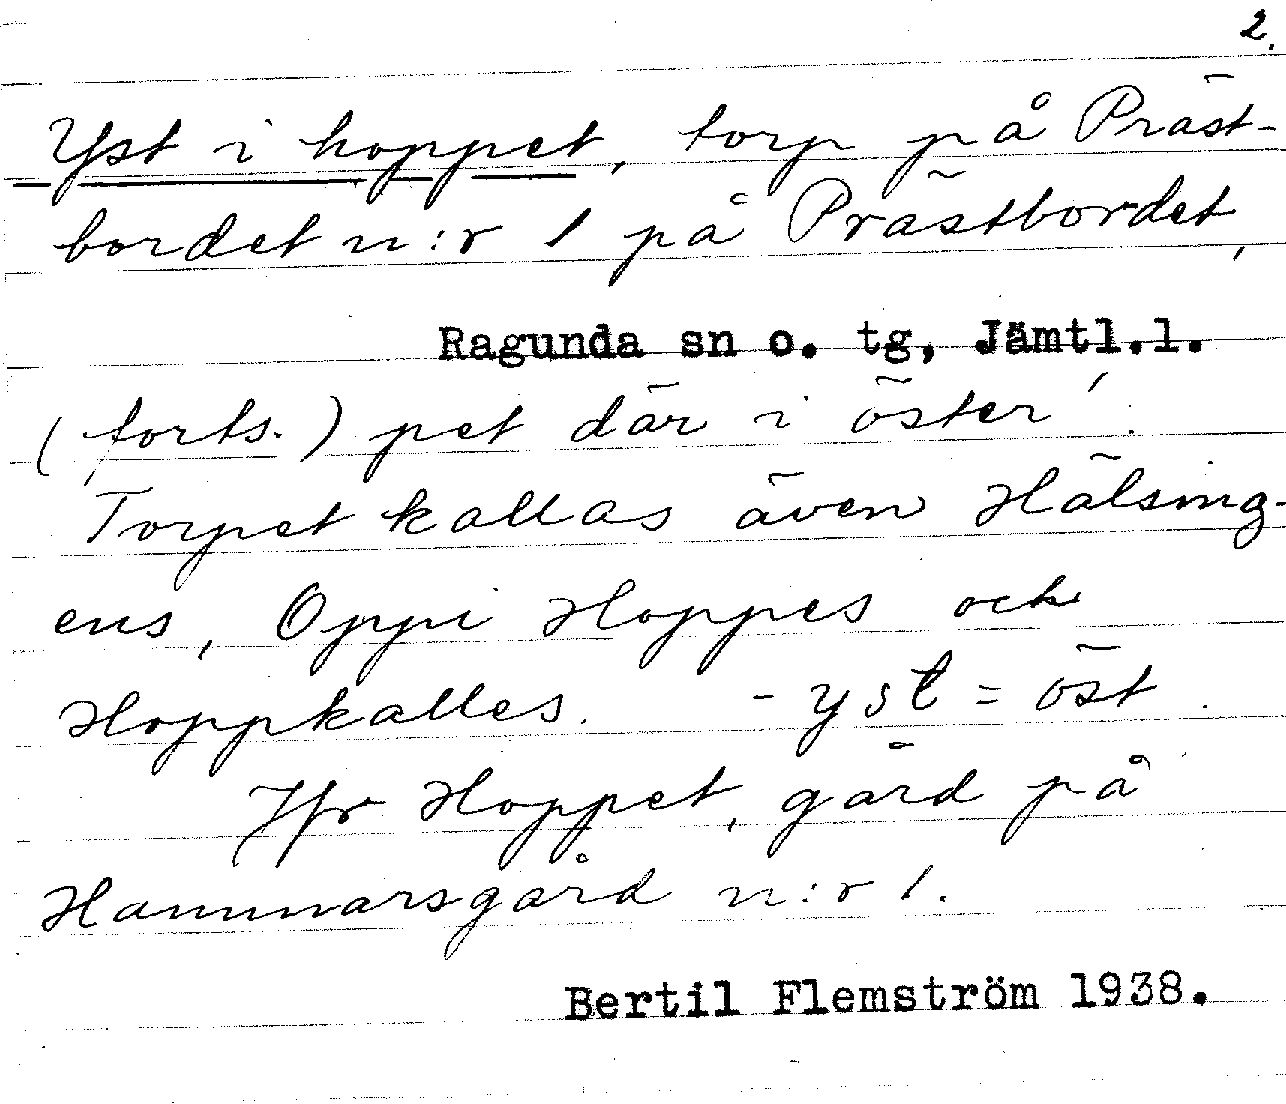 2.
Yst i hoppet, torp på Präst-
bordet n:r 1 på Prästbordet,
Ragunda sn o. tg, Jämtl.l.
(forts.) pet där i öster'.
Torpet kallas även Hälsing-
ens, Oppi Hoppes och
Hoppkalles. - yst = öst.
Jfr Hoppet, gård på
Hammarsgård n:r 1.
Bertil Flemström 1938.